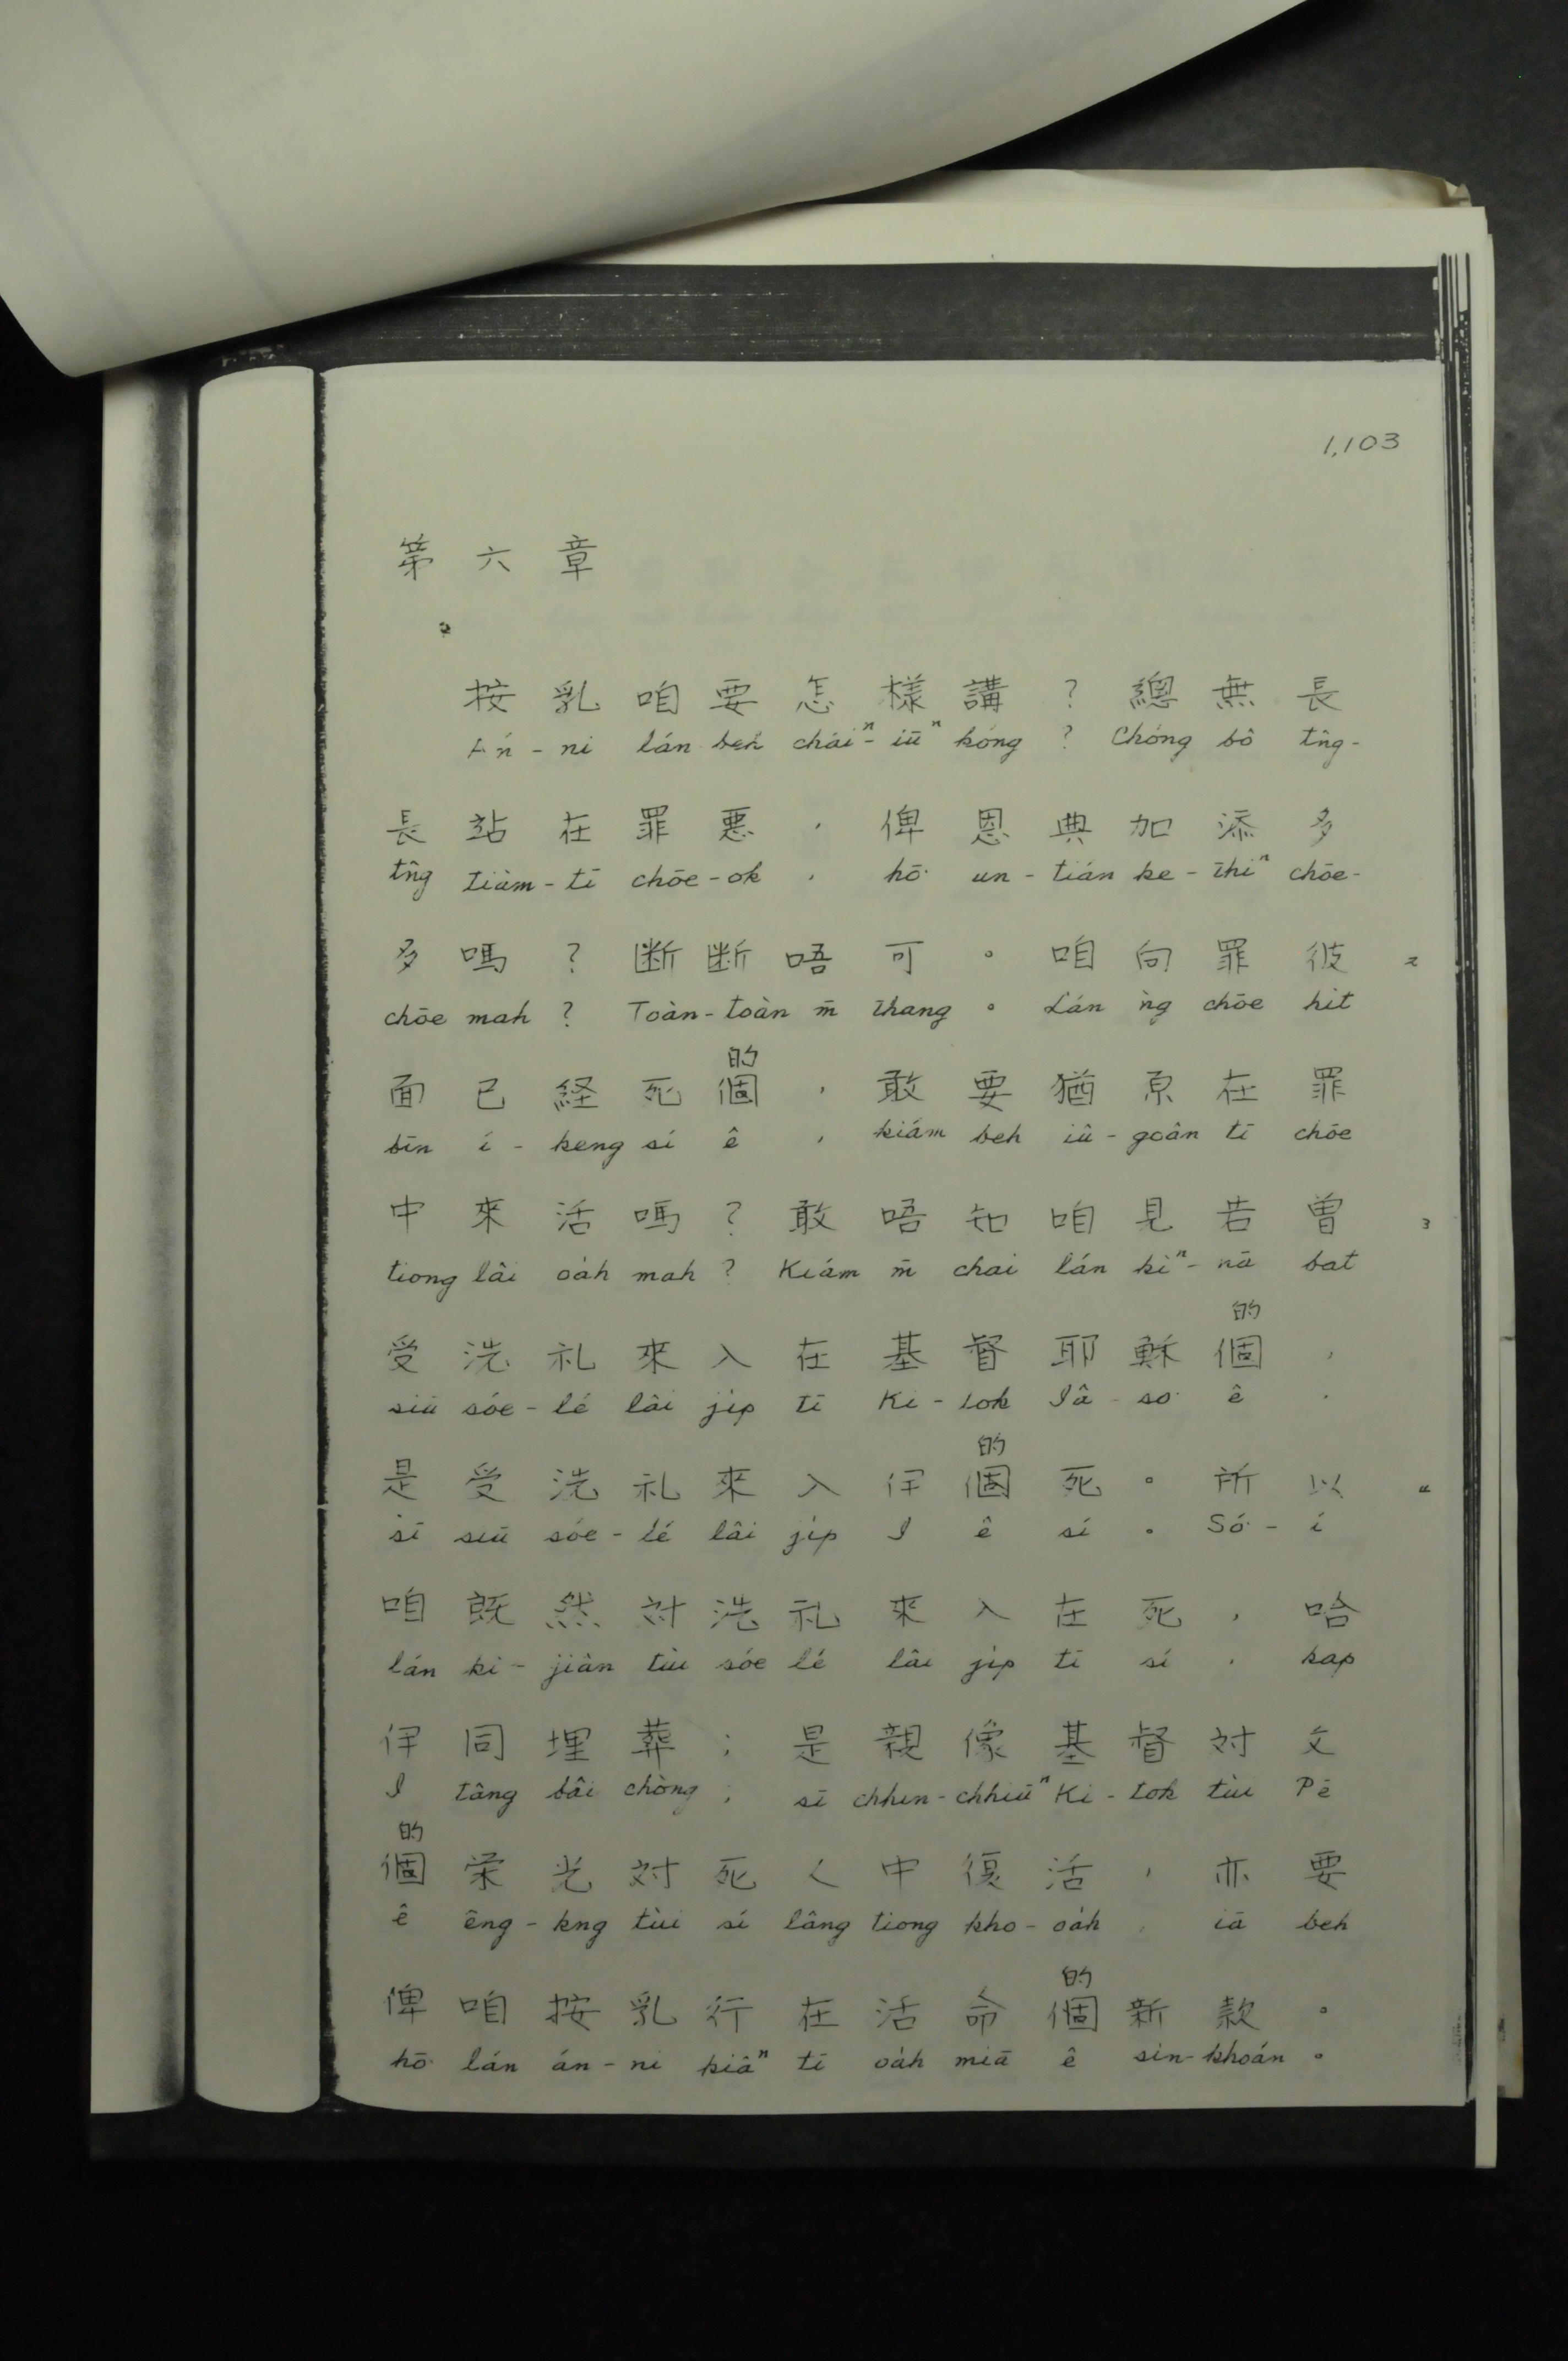 1,103
第六章
按乳咱要怎樣講?總無長
Án-ni lán beh cháiⁿ-iūⁿ kóng? Chóng bô tn̂g-
長站在罪惡,俾恩典加添多
tn̂g tiàm-tī chōe-ok, hō͘ un-tián ke-thiⁿ chōe-
多嗎?断断唔可。咱向罪彼 2
chōe mah? Toàn-toàn m̄ thang。Lán ǹg chōe hit
的
面已経死個,敢要猶原在罪
bīn í-keng sí ê, kiám beh iû-goân tī chōe
中來活嗎?敢唔知咱見若曽 3
tiong lâi oa̍h mah? Kiám m̄ chai lán kìⁿ-nā bat
的
受洗礼來入在基督耶穌個,
siū sóe-lé lâi ji̍p tī Ki-tok Iâ-so͘ ê,
的
是受洗礼來入伊個死。所以 4
sī siū sóe-lé lâi ji̍p I ê sí。Só͘-í
咱既然対洗礼來入在死,哈
lán kì-jiân tùi sóe lé lâi ji̍p tī sí, kap
伊同埋葬;是親像基督対父
I tâng bâi chòng; sī chhin-chhiūⁿ Ki-tok tùi Pē
的
個栄光対死人中復活,亦要
ê êng-kng tùi sí lâng tiong kho-oa̍h, iā beh
的
俾咱按乳行在活命個新款。
hō͘ lán án-ni kiâⁿ tī oa̍h miā ê sin-khoán。